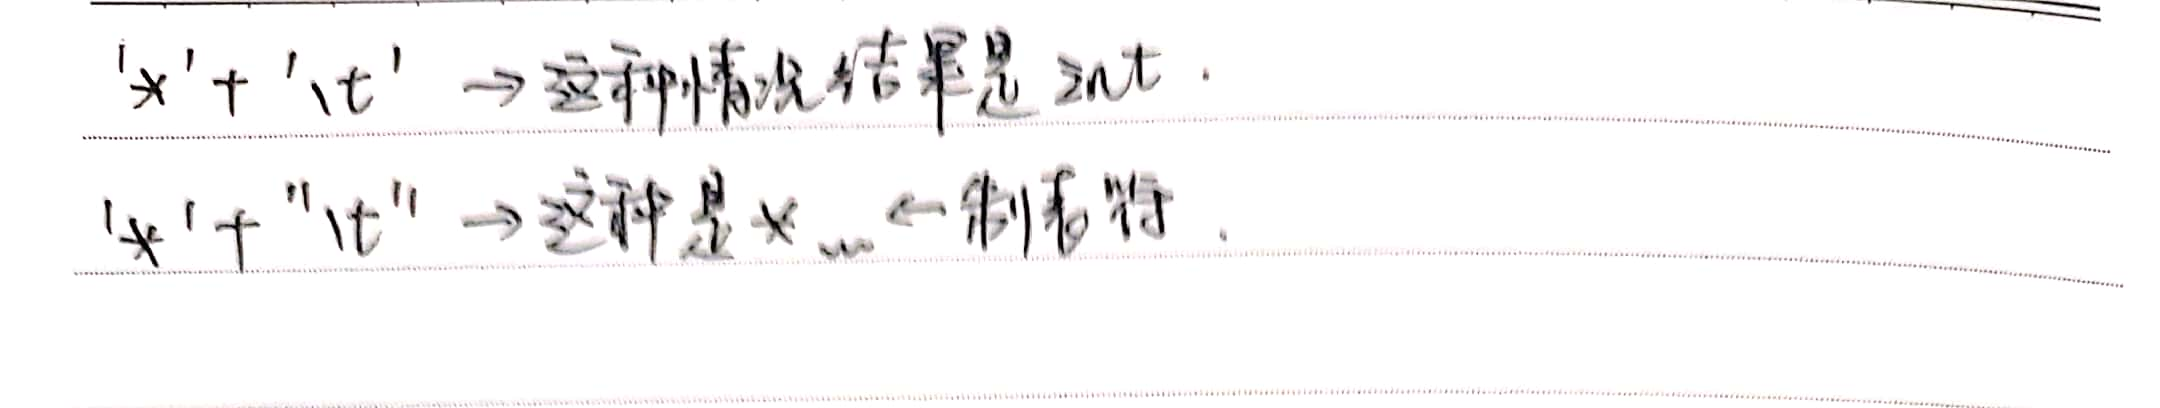 '*'+'\t' →这种情况结果是int.
'*'+"\t" →这种是* ←制表符.